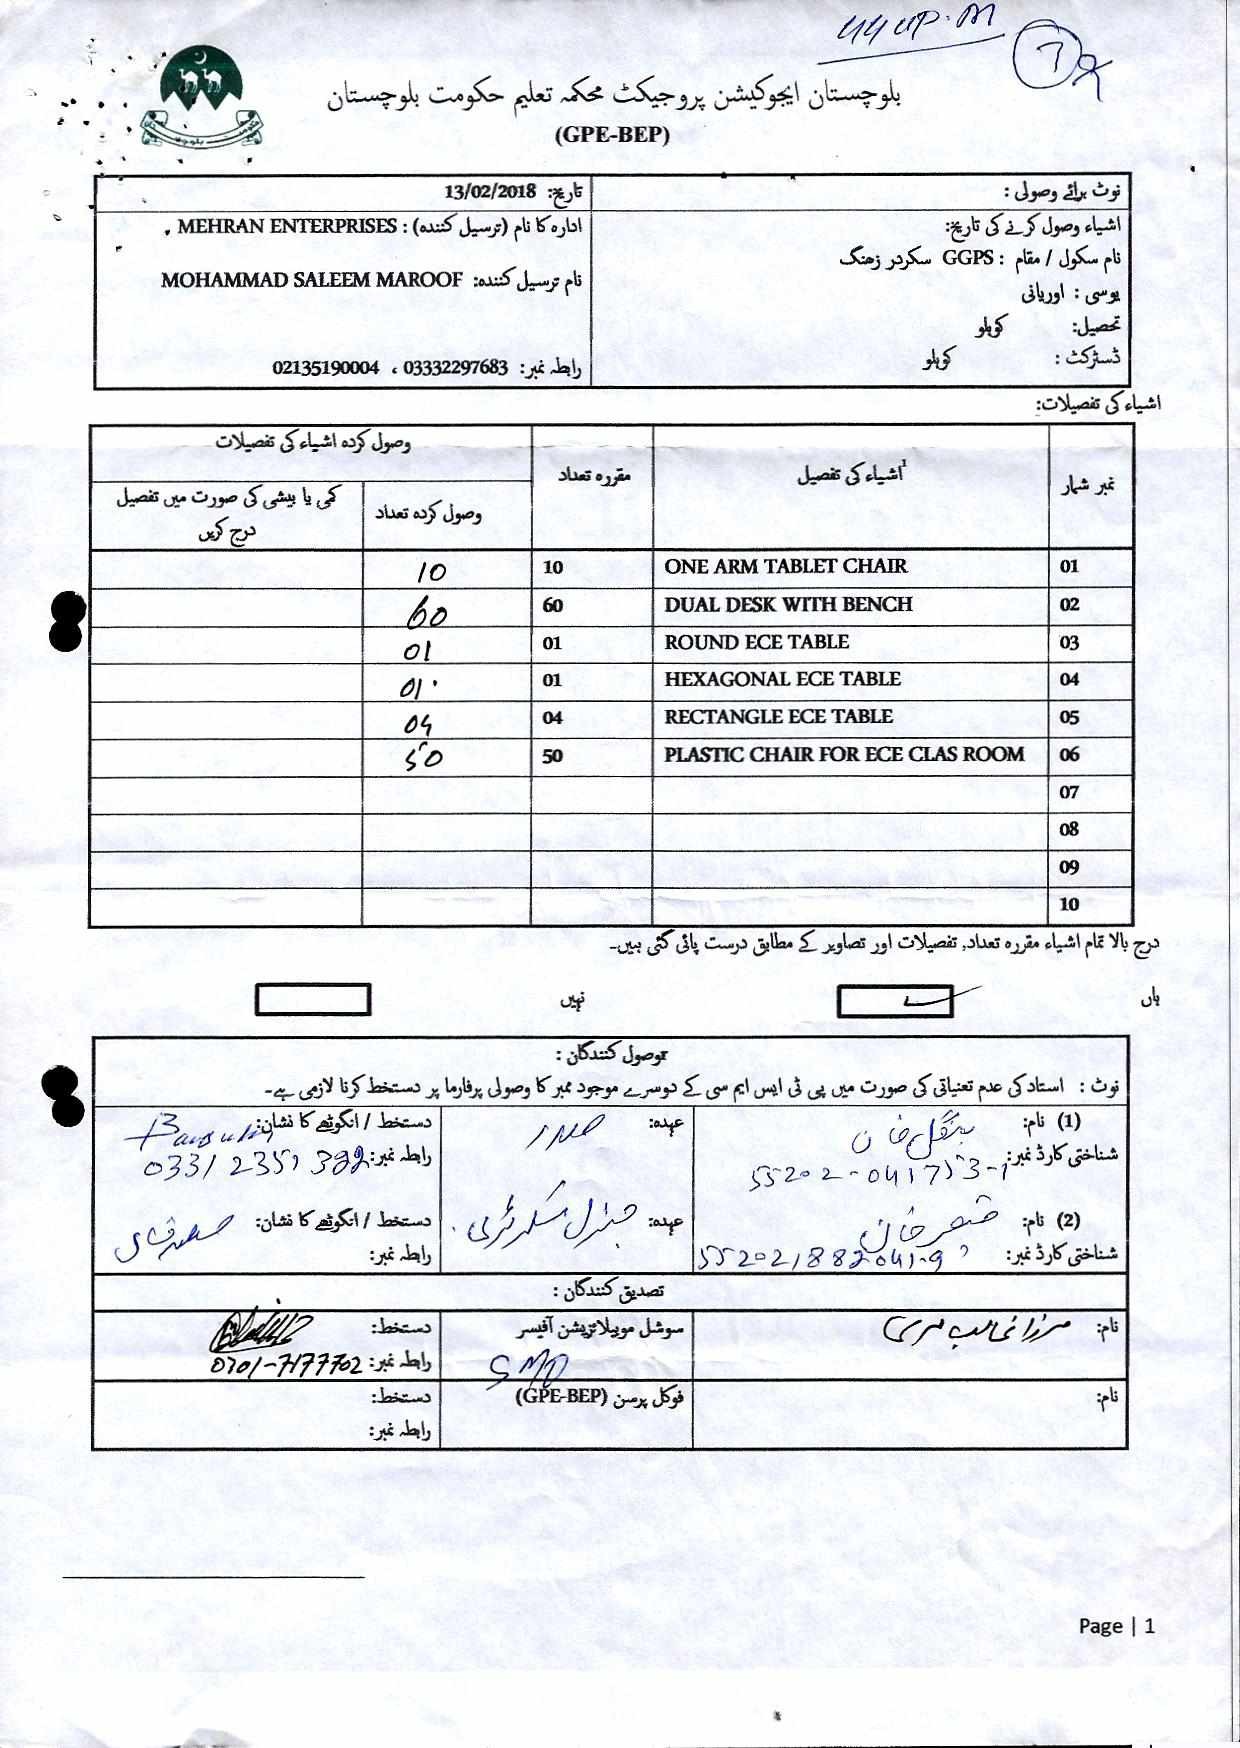 بلوچستان ایجوکیشن پروجیکٹ محکمہ تعلیم حکومت بلوچستان
(GPE-BEP)
نوٹ برائے وصولی :
تاریخ: 13/02/2018
اشیاء وصول کرنے کی تاریخ:
ادارہ کا نام (ترسیل کنندہ) : MEHRAN ENTERPRISES
نام سکول / مقام : GGPS سکردر زھنگ
نام ترسیل کنندہ: MOHAMMAD SALEEM MAROOF
یوسی : اوریانی
تحصیل: کوہلو
ڈسٹرکٹ : کوہلو
رابطہ نمبر: 03332297683 ، 02135190004
اشیاء کی تفصیلات:
نمبر شمار اشیاء کی تفصیل1 مقررہ تعداد وصول کردہ اشیاء کی تفصیلات
وصول کردہ تعداد کمی یا بیشی کی صورت میں تفصیل درج کریں
01 ONE ARM TABLET CHAIR 10 10
02 DUAL DESK WITH BENCH 60 60
03 ROUND ECE TABLE 01 01
04 HEXAGONAL ECE TABLE 01 01
05 RECTANGLE ECE TABLE 04 04
06 PLASTIC CHAIR FOR ECE CLAS ROOM 50 50
07
08
09
10
درج بالا تمام اشیاء مقررہ تعداد, تفصیلات اور تصاویر کے مطابق درست پائی گئی ہیں۔
ہاں نہیں
وصول کنندگان :
نوٹ : استاد کی عدم تعنیاتی کی صورت میں پی ٹی ایس ایم سی کے دوسرے موجود ممبر کا وصولی پرفارما پر دستخط کرنا لازمی ہے۔
(1) نام: بنگل خان عہدہ: صدر دستخط / انگوٹھے کا نشان:
شناختی کارڈ نمبر: رابطہ نمبر:
(2) نام: خان عہدہ: جنرل سکرٹری دستخط / انگوٹھے کا نشان:
شناختی کارڈ نمبر: رابطہ نمبر:
تصدیق کنندگان :
نام: مرزا غالب مری سوشل موبیلائزیشن آفیسر دستخط:
SMO رابطہ نمبر: 0301-7177702
نام: فوکل پرسن (GPE-BEP) دستخط:
رابطہ نمبر:
Page | 1